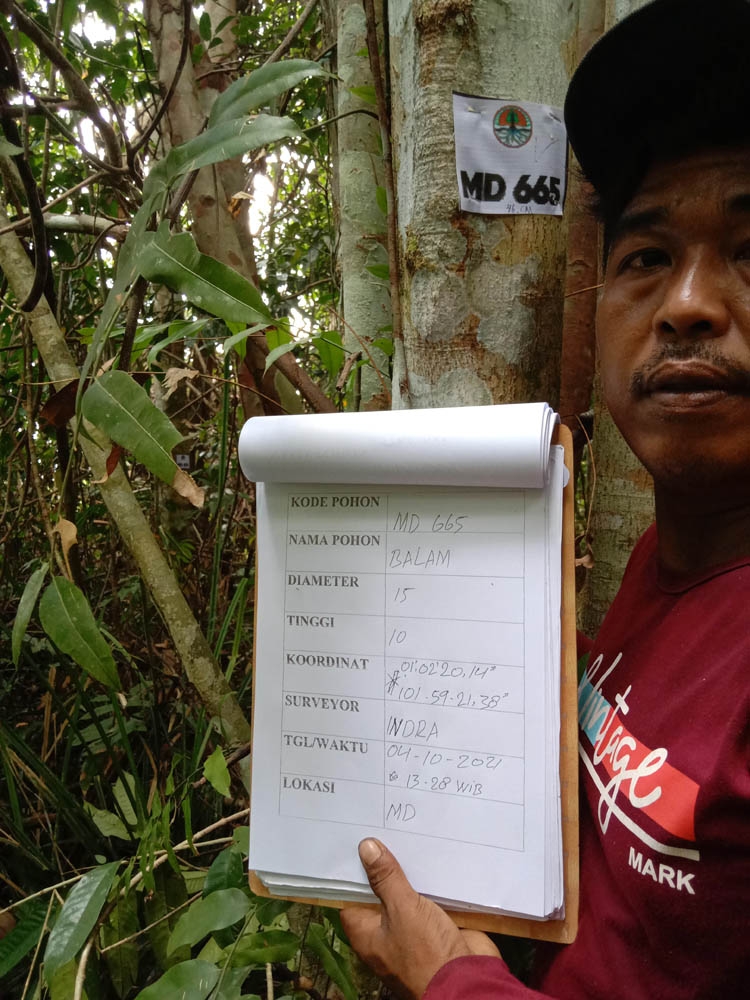 MD 665
46 CM
KODE POHON MD 665
NAMA POHON BALAM
DIAMETER 15
TINGGI 10
KOORDINAT 01°02'20,14"
101-59-21,38"
SURVEYOR INDRA
TGL/WAKTU 04-10-2021
13-28 WIB
LOKASI MD
MARK